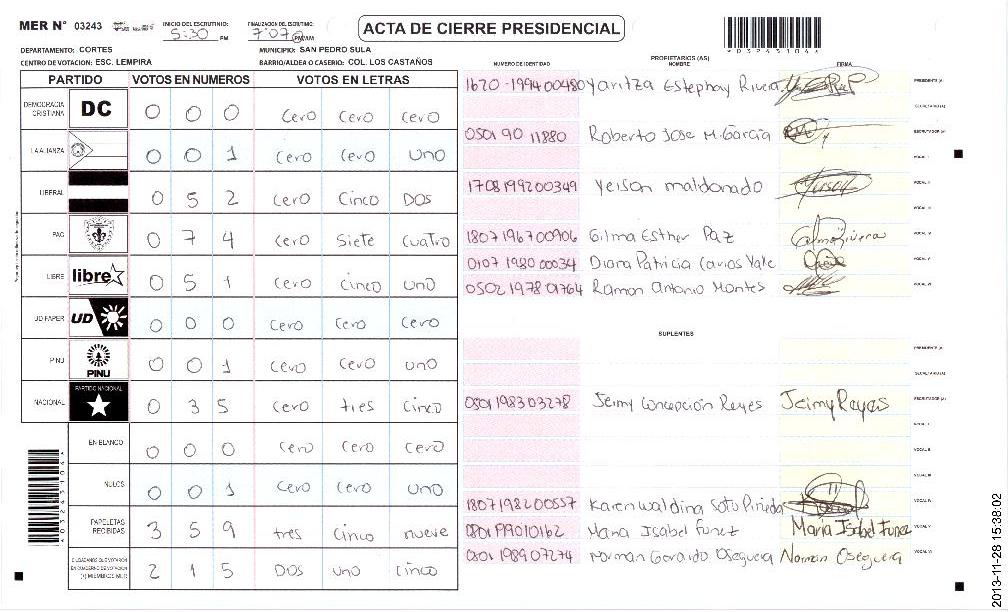 MER N° 03243 INICIO DEL ESCRUTINIO: 5:30 PM FINALIZACIÓN DEL ESCRUTINIO: 7:07 PM/AM ACTA DE CIERRE PRESIDENCIAL
*03243104*
DEPARTAMENTO: CORTES MUNICIPIO: SAN PEDRO SULA
CENTRO DE VOTACION: ESC. LEMPIRA BARRIO/ALDEA O CASERIO: COL. LOS CASTAÑOS
PROPIETARIOS (AS)
NUMERO DE IDENTIDAD NOMBRE FIRMA
PARTIDO VOTOS EN NUMEROS VOTOS EN LETRAS
DEMOCRACIA CRISTIANA DC 0 0 0 Cero Cero Cero
LA ALIANZA 0 0 1 Cero Cero Uno
LIBERAL 0 5 2 Cero Cinco Dos
PAC 0 7 4 Cero Siete Cuatro
LIBRE libre 0 5 1 Cero Cinco Uno
UD FAPER UD 0 0 0 Cero Cero Cero
PINU PINU 0 0 1 Cero Cero Uno
NACIONAL PARTIDO NACIONAL 0 3 5 Cero tres Cinco
EN BLANCO 0 0 0 Cero Cero Cero
NULOS 0 0 1 Cero Cero Uno
PAPELETAS RECIBIDAS 3 5 9 tres Cinco nueve
CIUDADANOS QUE VOTARON EN CUADERNO DE VOTACION (+) MIEMBROS MER 2 1 5 DOS uno Cinco
1620-199400480 Yaritza Estephay Rivera PRESIDENTE (A)
SECRETARIO (A)
0501 90 11880 Roberto Jose M. García ESCRUTADOR (A)
VOCAL I
1708199200349 Yeison maldonado VOCAL II
VOCAL III
1807196700906 Gilma Esther Paz VOCAL IV
0107 1980 00034 Diana Patricia VOCAL V
0502 1978 01764 Ramon Antonio Montes VOCAL VI
SUPLENTES
PRESIDENTE (A)
SECRETARIO (A)
0501198303278 Jeimy Concepción Reyes Jeimy Reyes ESCRUTADOR (A)
VOCAL I
VOCAL II
VOCAL III
1807198200557 Karen Waldina Soto Pineda VOCAL IV
0801 199010162 Maria Isabel Funez María Isabel Funez VOCAL V
0501 198907274 Norman Gerardo Oseguera Norman Oseguera VOCAL VI
*03243104*
2013-11-28 15:38:02